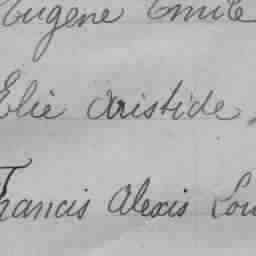 Eugène Emile
Elie Aristide,
Francis Alexis Lou